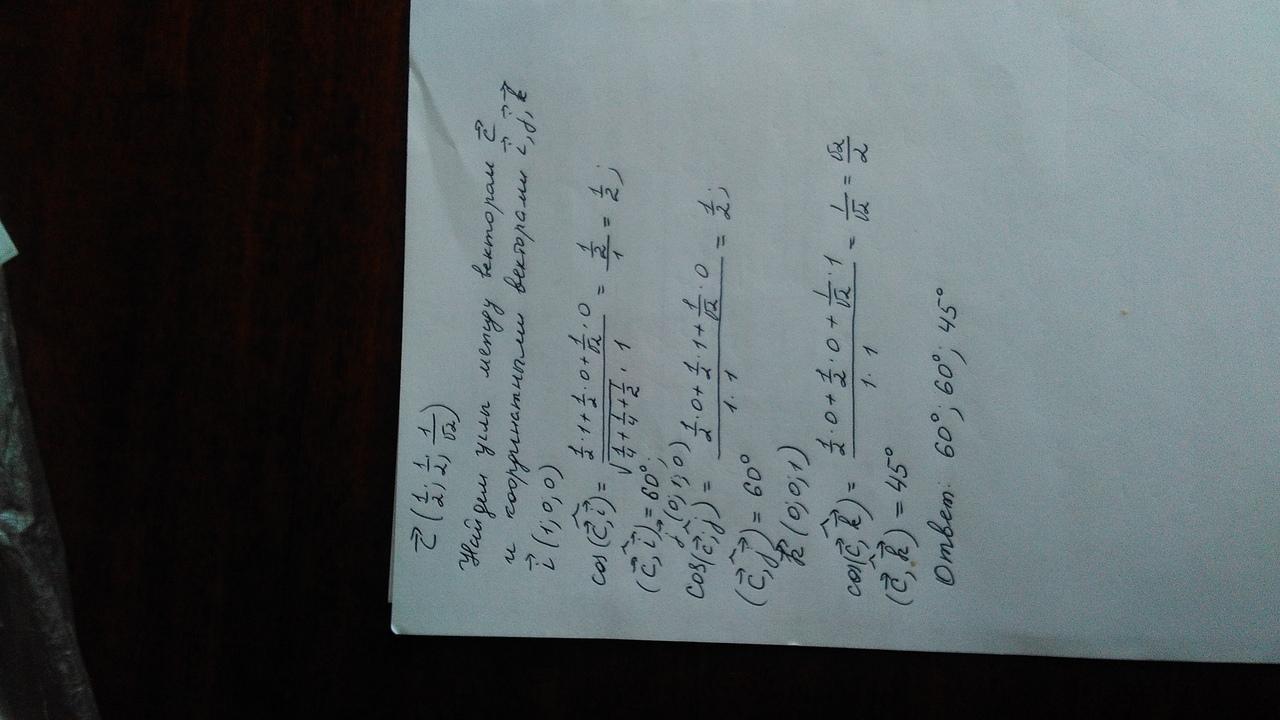 c⃗ (1/2; 1/2; 1/√2)
Найдем углы между вектором c⃗
и координатными векторами i⃗, j⃗, k⃗
i⃗ (1; 0; 0)
cos(c⃗, i⃗) = (1/2 · 1 + 1/2 · 0 + 1/√2 · 0) / (√(1/4 + 1/4 + 1/2) · 1) = (1/2)/1 = 1/2;
(c⃗, i⃗) = 60°;
j⃗ (0; 1; 0)
cos(c⃗; j⃗) = (1/2 · 0 + 1/2 · 1 + 1/√2 · 0) / (1 · 1) = 1/2;
(c⃗, j⃗) = 60°
k⃗ (0; 0; 1)
cos(c⃗, k⃗) = (1/2 · 0 + 1/2 · 0 + 1/√2 · 1) / (1 · 1) = 1/√2 = √2/2
(c⃗, k⃗) = 45°
Ответ: 60°; 60°; 45°